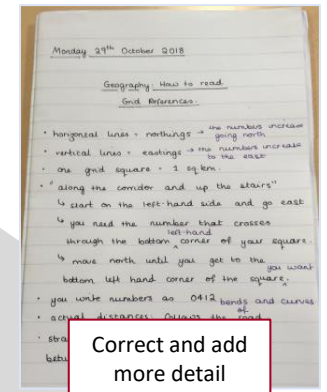 Monday 29th October 2018
Geography: How to read
Grid References.
• horizontal lines = northings → the numbers increase going north
• vertical lines = eastings → the numbers increase to the east
• one grid square = 1 sq km.
• "along the corridor and up the stairs"
↳ start on the left-hand side and go east
↳ you need the number that crosses
through the bottom left-hand corner of your square.
↳ move north until you get to the
bottom left hand corner of the square you want.
• you write numbers as 0412
• actual distances: follows the bends and curves of road
• stra
betw
Correct and add
more detail